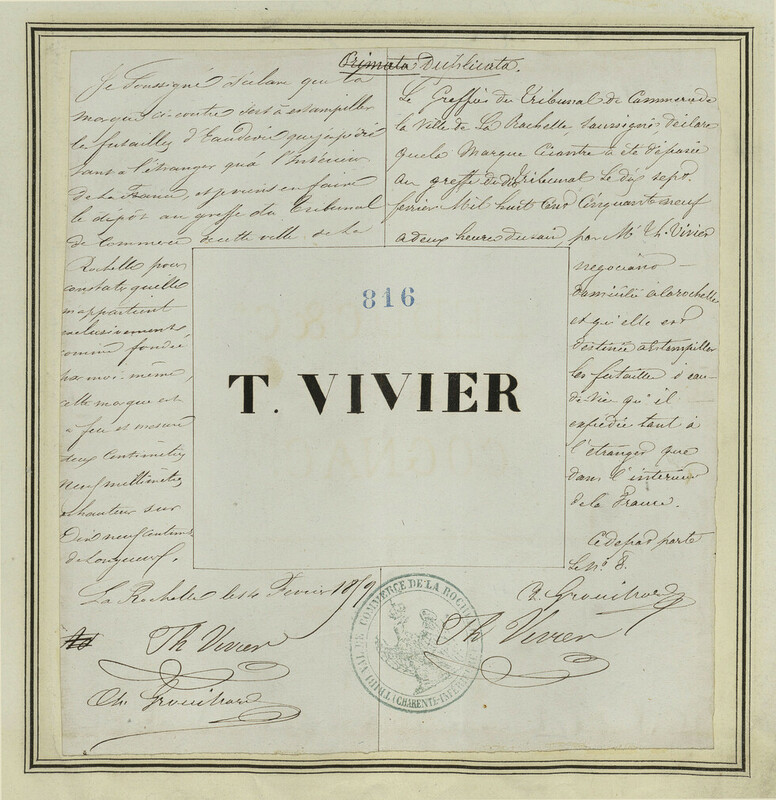 Primata Duplicata.
Je Soussigné déclare que la
marque ci-contre sert à estampiller
les futailles d'Eaudevie que j'expédie
tant à l'étranger qu'à l'intérieur
de la France, et je viens en faire
le dépôt au greffe du Tribunal
de Commerce de cette ville de La
Rochelle pour
constater qu'elle
m'appartient
exclusivement,
comme fondée
par moi-même,
cette marque est
à feu et mesure
deux Centimètres
neuf millimètres
de hauteur sur
Dix neuf Centim.
de longueur.
La Rochelle le 14 Février 1859
Th Vivier
Ch. Grouihard
Le Greffier du Tribunal de Commerce de
la Ville de La Rochelle, soussigné déclare
que la Marque Cicontre a été déposée
au greffe du dit Tribunal le dix sept
février Mil huit Cent Cinquante neuf
à deux heures du soir, par Mr. Th. Vivier
négociant
domicilié à la rochelle
et qu'elle est
destinée à estampiller
les futailles d'eau-
de-vie qu'il
expédie tant à
l'étranger que
dans l'intérieur
de la France.
Ce dépôt porte
Le No. 8.
Ch. Grouihard
Th Vivier
816
T. VIVIER
TRIBUNAL DE COMMERCE DE LA ROCHELLE
CHARENTE-INFERIEURE